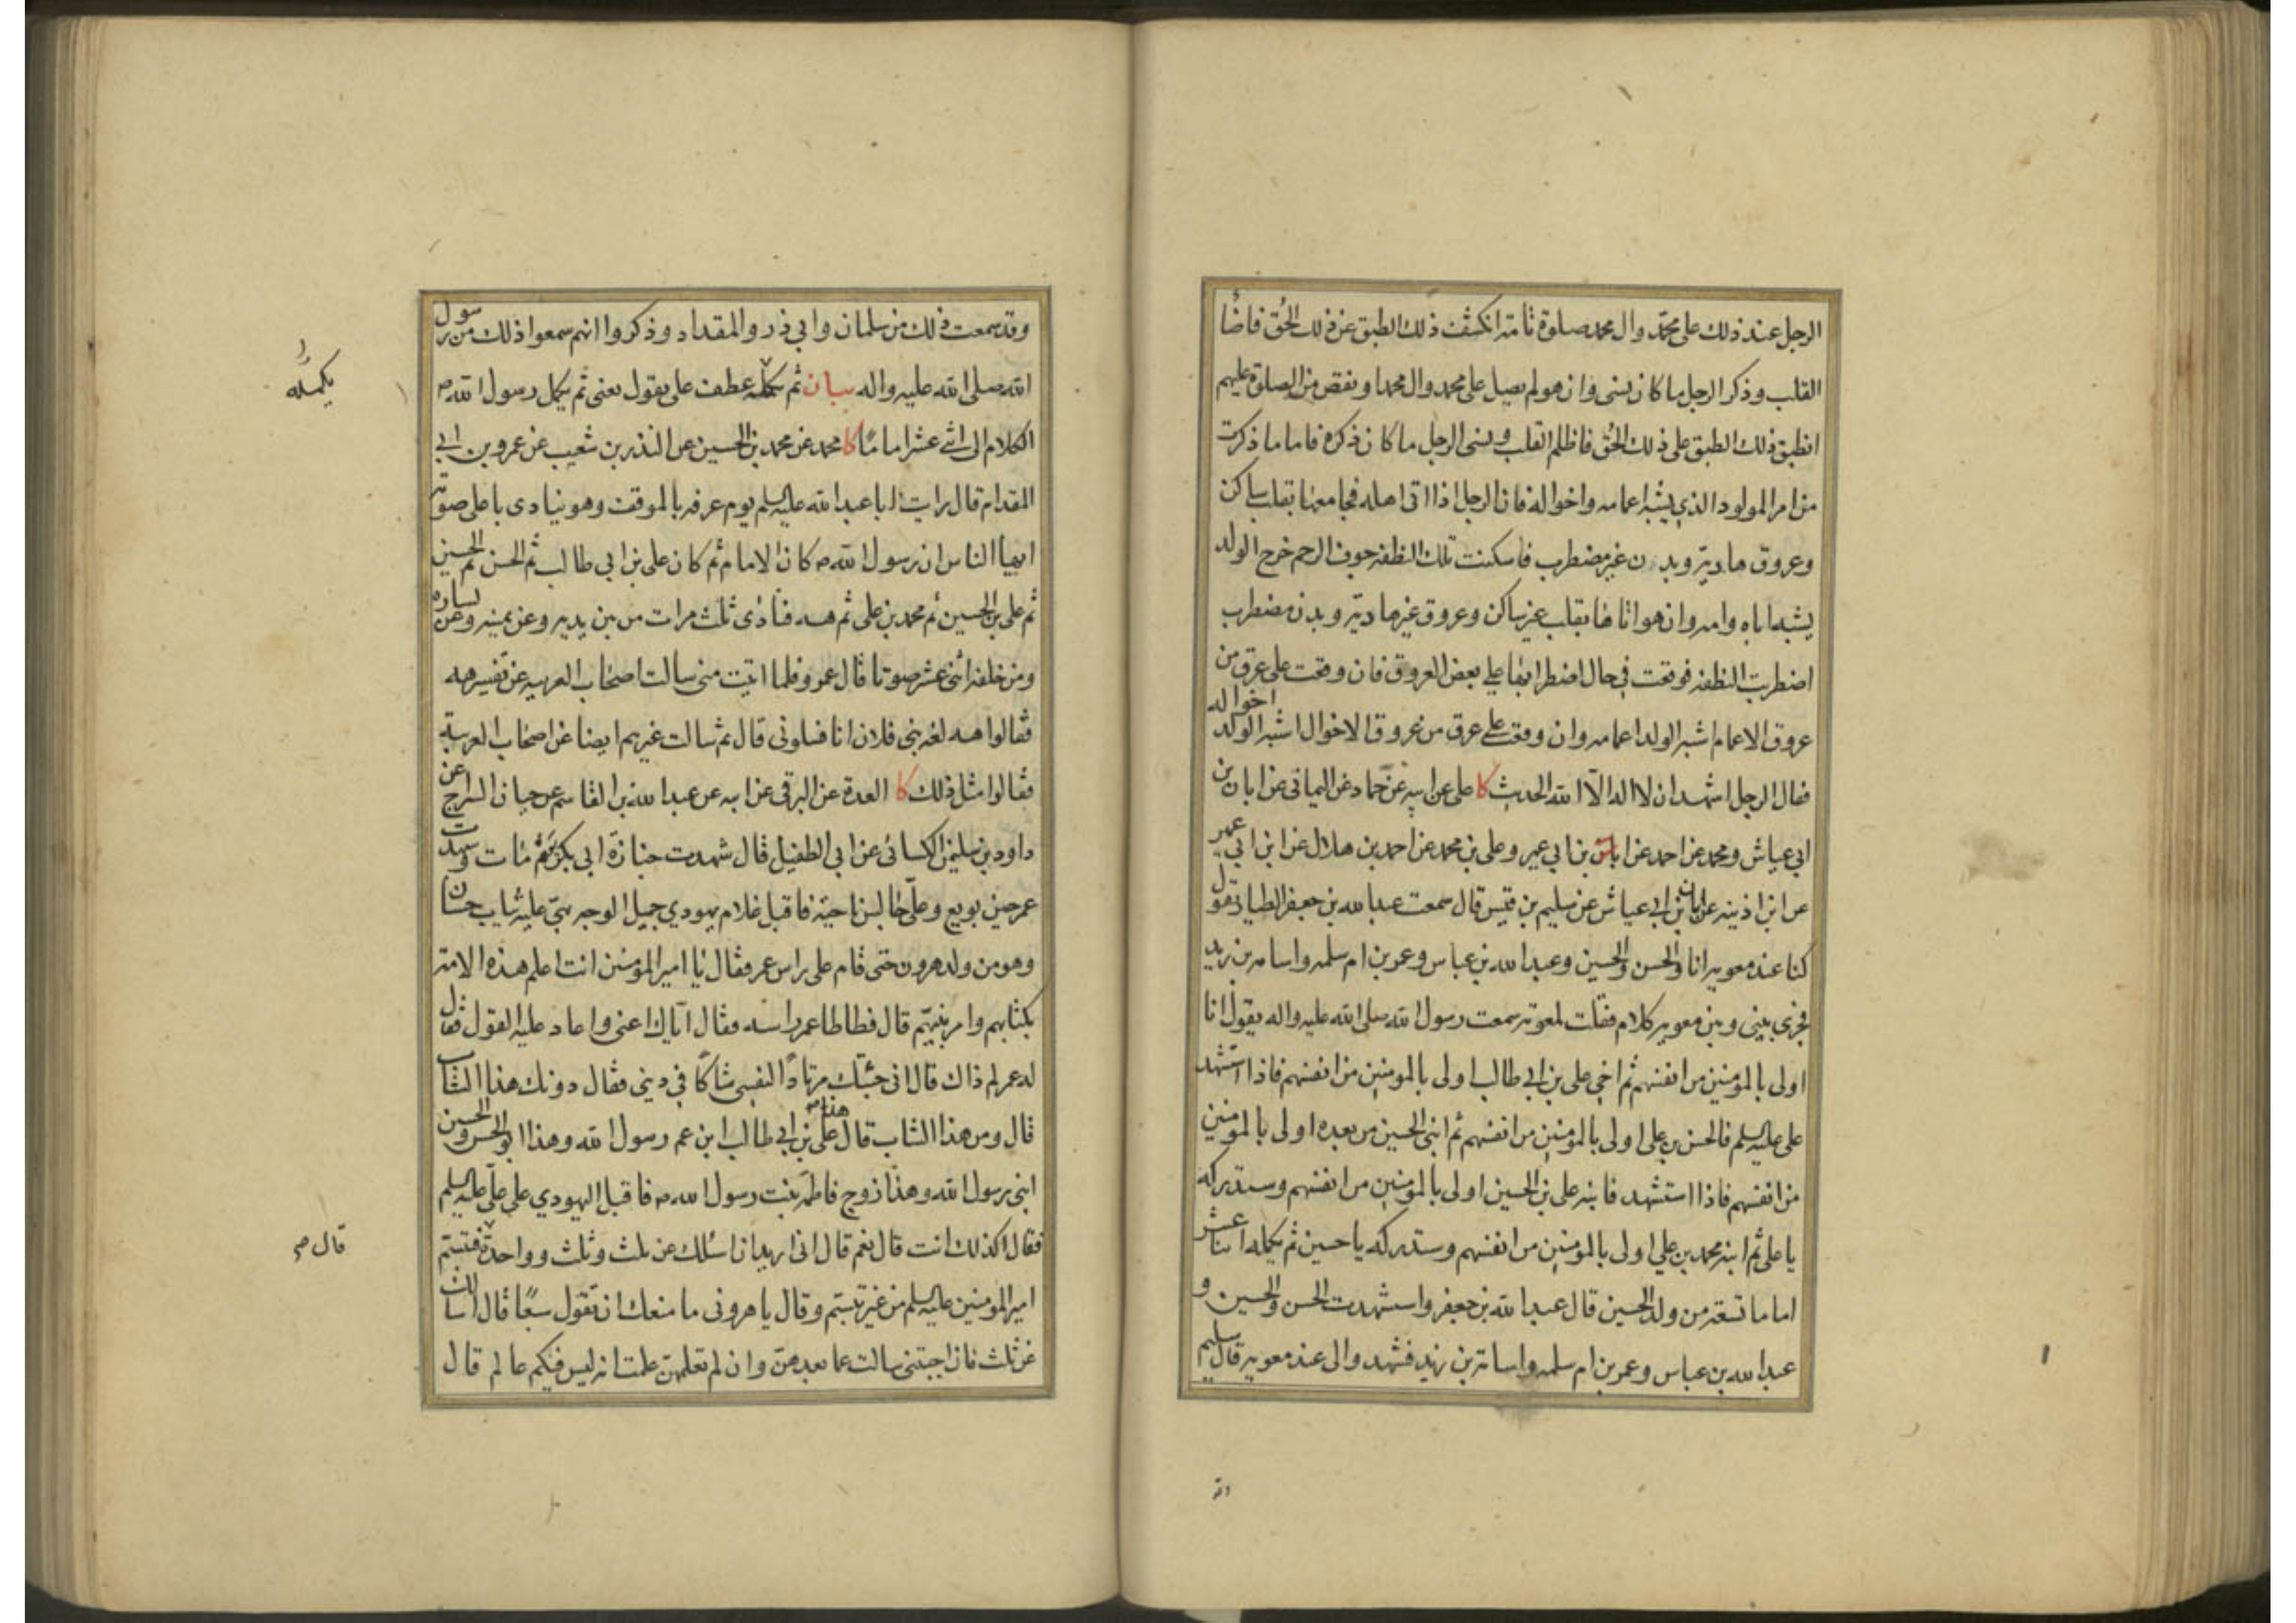 الرجل عند ذلك على محمّد وال محمد صلوة تامة انكشف ذلك الطبق عن ذلك الحُق فاضا
القلب وذكر الرجل ما كان نسى وان هو لم يصل على محمد وال محمد او نقص من الصلوة عليهم
انطبق ذلك الطبق على ذلك الحُق فاظلم القلب ونسى الرجل ما كان ذكره فاما ما ذكرت
من امر المولود الذي يشبه اعمامه واخواله فان الرجل اذا اتى اهله فجامعها بقلب ساكن
وعروق هادية وبدن غير مضطرب فاسكنت تلك النطفة جوف الرحم خرج الولد
يشبه اباه وامه وان هو اتاها بقلب غير ساكن وعروق غير هادية وبدن مضطرب
اضطربت النطفة فوقعت في حال اضطرابها على بعض العروق فان وقعت على عرق من
عروق الاعمام اشبه الولد اعمامه وان وقعت على عرق من عروق الاخوال اشبه الولد اخواله
فقال الرجل اشهد ان لا اله الّا الله الحديث كا على عن ابيه عن حماد عن اليمانى عن ابان بن
ابي عياش ومحمد عن احمد عن بن ابي عمير وعلى بن محمد عن احمد بن هلال عن ابن ابي عمير
عن ابن اذينه عن ابان بن ابي عياش عن سليم بن قيس قال سمعت عبد الله بن جعفر الطيار يقول
كنا عند معويه انا والحسن والحسين وعبد الله بن عباس وعمر بن ام سلمه واسامه بن زيد
فجرى بينى وبين معويه كلام فقلت لمعويه سمعت رسول الله صلى الله عليه واله يقول انا
اولى بالمؤمنين من انفسهم ثم اخي على بن ابي طالب اولى بالمومنين من انفسهم فاذا استشهد
على عليه السلم فالحسن بن علي اولى بالمؤمنين من انفسهم ثم ابنى الحسين من بعده اولى بالمومنين
من انفسهم فاذا استشهد فابنه على بن الحسين اولى بالمومنين من انفسهم وستدركه
يا على ثم ابنه محمد بن علي اولى بالمومنين من انفسهم وستدركه يا حسين ثم يكمله اثنا عشر
اماما تسعة من ولد الحسين قال عبد الله بن جعفر واستشهدت الحسن والحسين و
عبد الله بن عباس وعمر بن ام سلمه واسامة بن زيد فشهدوا لى عند معويه قال سليم
وقد سمعت ذلك من سلمان وابي ذر والمقداد وذكروا انهم سمعوا ذلك من رسول
الله صلى الله عليه واله بيان ثم يكمله عطف على يقول يعنى ثم يكمل رسول الله ص
الكلام الى اثنى عشر اماما كا محمد عن محمد بن الحسين عن النذر بن شعيب عن عمرو بن ابي
المقدام قال رايت ابا عبد الله عليه السلم يوم عرفه بالموقف وهو ينادى باعلى صوته
ايها الناس ان رسول الله ص كان الامام ثم كان على بن ابي طالب ثم الحسن ثم الحسين
ثم على بن الحسين ثم محمد بن على ثم هه فنادى ثلث مرات من بين يديه وعن يمينه وعن يساره
ومن خلفه اثنى عشر صوتا قال عمرو فلما اتيت منى سالت اصحاب العربيه عن تفسير هه
فقالوا هه لغه بنى فلان انا فسلونى قال ثم سالت غيرهم ايضا عن اصحاب العربية
فقالوا مثل ذلك كا العدة عن البرقى عن ابيه عن عبد الله بن القاسم عن حيان السراج عن
داود بن سليمن الكسائى عن ابي الطفيل قال شهدت جنازة ابي بكر يوم مات وشهدت
عمر حين بويع وعلىّ جالس ناحيّة فاقبل غلام يهودي جميل الوجه بهىّ عليه ثياب حسان
وهو من ولد هرون حتى قام على راس عمر فقال يا امير المؤمنين انت اعلم هذه الامة
بكتابهم وامر نبيّهم قال فطاطا عمر راسه فقال ايّاك اعنى واعاد عليه القول فقال
له عمر لم ذاك قال انى جئتك مرتادًا لنفسى شاكًا في دينى فقال دونك هذا الشاب
قال ومن هذا الشاب قال هذا على بن ابي طالب ابن عم رسول الله وهذا ابو الحسن والحسين
ابنى رسول الله وهذا زوج فاطمه بنت رسول الله ص فاقبل اليهودي على علىّ عليه السلم
فقال اكذلك انت قال نعم قال انى اريد ان اسئلك عن ثلث وثلث وواحدة فتبسّم
امير المؤمنين عليه السلم من غير تبسّم وقال يا هرونى ما منعك ان تقول سبعًا قال اسالك
عن ثلث فان اجبتنى سالت عما بعدهنّ وان لم تعلمهن علمت انه ليس فيكم عالم قال
يكمله
قال ص